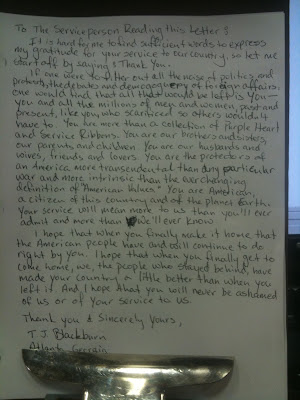 To The Serviceperson Reading this Letter:
It is hard for me to find sufficient words to express
my gratitude for your service to our country, so let me
start off by saying: Thank you.
If one were to filter out all the noise of politics and
protests, the debates and demagoguery of foreign affairs,
one would find that all that would be left is you—
you and all the millions of men and women, past and
present, like you who sacrificed so others wouldn't
have to. You are more than a collection of Purple Heart
and Service Ribbons. You are our brothers and sisters,
our parents and children. You are our husbands and
wives, friends and lovers. You are the protectors of
an America more transcendental than any particular
war and more intrinsic than the ever changing
definition of "American Values." You are America,
a citizen of this country and of the planet Earth.
Your service will mean more to us than you'll ever
admit and more than we'll ever know.
I hope that when you finally make it home that
the American people have and will continue to do
right by you. I hope that when you finally get to
come home, we, the people who stayed behind, have
made your country a little better than when you
left it. And, I hope that you will never be ashamed
of us or of your service to us.
Thank you & Sincerely Yours,
T. J. Blackburn
Atlanta, Georgia